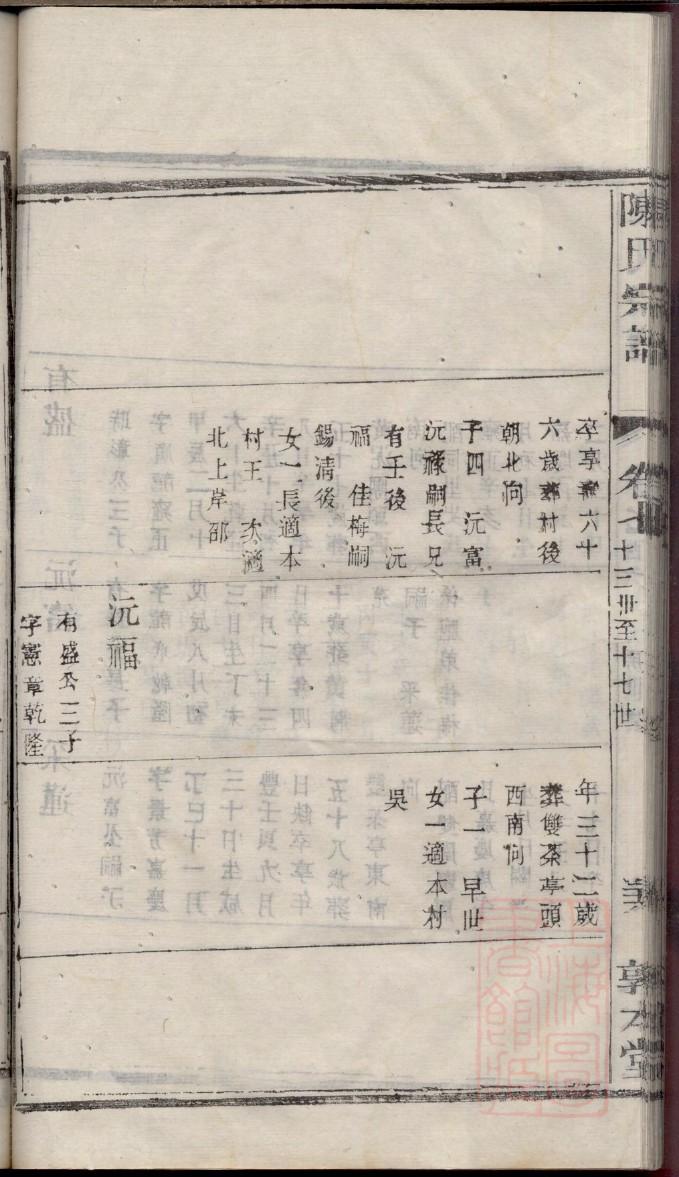 陳氏宗譜
卷七
十三世至十七世
敦本堂
卒享壽六十
六歲葬村後
朝北向
子四　沅富
沅祿嗣長兄
有壬後　沅
福　佳梅嗣
錫清後
女二長適本
村王　次適
北上岸邵
沅福
有盛公三子
字憲章乾隆
年三十二歲
葬雙茶亭頭
西南向
子一　早世
女一適本村
吳